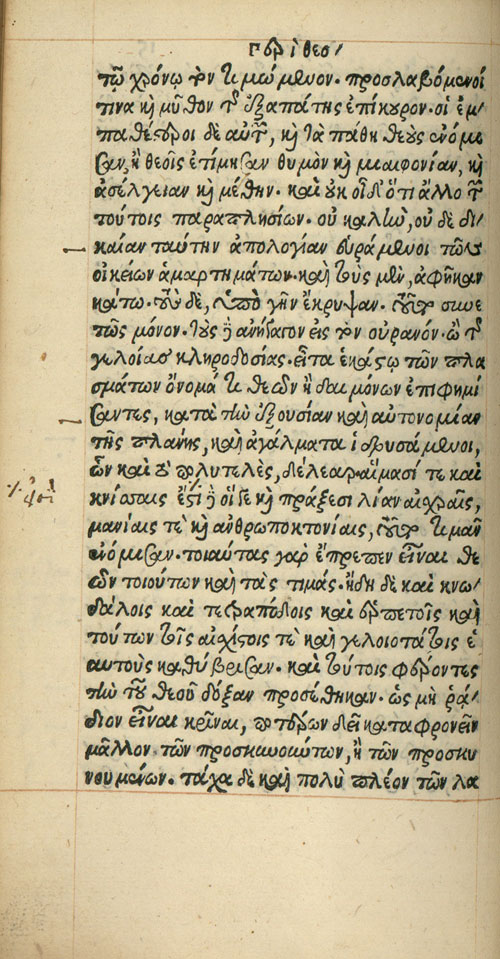 τῷ χρόνῳ τὸν τιμώμενον· προσλαβόμενοί
τινα καὶ μῦθον τῆς ἐξαπάτης ἐπίκουρον· οἱ ἐμ
παθέστεροι δὲ αὐτῶν, καὶ τὰ πάθη θεοὺς ἐνόμι
σαν, ἢ θεοῖς ἐτίμησαν θυμὸν καὶ μιαιφονίαν, καὶ
ἀσέλγειαν καὶ μέθην· καὶ οὐκ οἶδ' ὅτι ἄλλο τῶν
τούτοις παραπλησίων· οὐ καλὴν, οὐδὲ δι
καίαν ταύτην ἀπολογίαν εὑράμενοι τῶν
οἰκείων ἁμαρτημάτων· καὶ τοὺς μὲν, ἀφῆκαν
κάτω· τοὺς δὲ, ὑπὸ γῆν ἔκρυψαν· τοῦτο συνε
τῶς μόνον· τοὺς δὲ ἀνήγαγον εἰς τὸν οὐρανόν· ὢ τῆς
γελοίας κληροδοσίας· εἶτα ἑκάστῳ τῶν πλα
σμάτων ὄνομά τι θεῶν ἢ δαιμόνων ἐπιφημί
σαντες, κατὰ τὴν ἐξουσίαν καὶ αὐτονομίαν
τῆς πλάνης, καὶ ἀγάλματα ἱδρυσάμενοι,
ὧν καὶ τὸ πολυτελὲς, δέλεαρ· αἵμασί τε καὶ
κνίσαις ἔστι δὲ οἵ γε καὶ πράξεσι λίαν αἰσχραῖς,
μανίαις τὲ καὶ ἀνθρωποκτονίαις, τοῦτο τιμᾶν
ἐνόμισαν· τοιαύτας γὰρ ἔπρεπεν εἶναι θε
ῶν τοιούτων καὶ τὰς τιμάς· ἤδη δὲ καὶ κνω
δάλοις καὶ τετραπόδοις καὶ ἑρπετοῖς καὶ
τούτων τοῖς αἰσχίστοις τὲ καὶ γελοιοτάτοις ἑ
αυτοὺς καθύβρισαν· καὶ τούτοις φέροντες
τὴν τοῦ θεοῦ δόξαν προσέθηκαν· ὡς μὴ ῥᾴ
διον εἶναι κρῖναι, ποτέρων δεῖ καταφρονεῖν
μᾶλλον τῶν προσκυνούντων, ἢ τῶν προσκυ
νουμένων· τάχα δὲ καὶ πολὺ πλέον τῶν λα